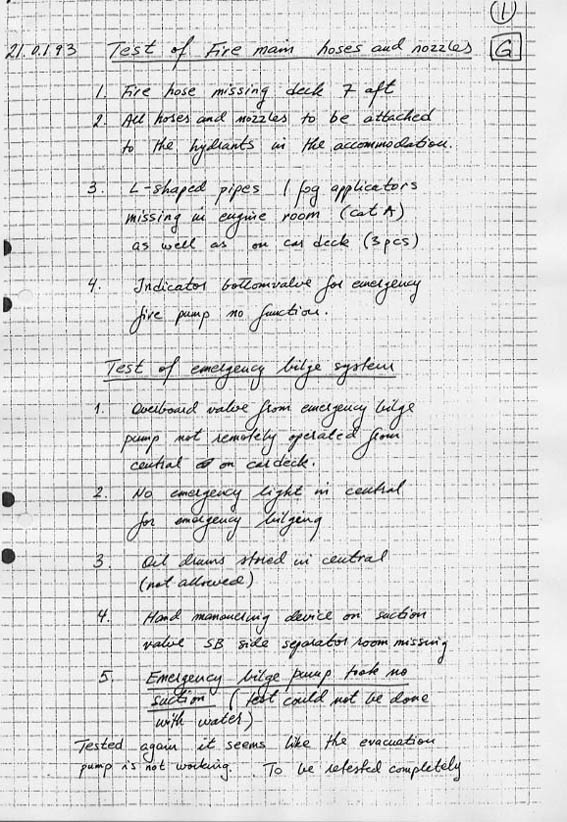 1
21.01.93 Test of Fire main hoses and nozzles G
1. Fire hose missing deck 7 aft
2. All hoses and nozzles to be attached
to the hydrants in the accommodation.
3. L-shaped pipes / fog applicators
missing in engine room (cat A)
as well as on car deck (3 pcs)
4. Indicator bottomvalve for emergency
fire pump no function.
Test of emergency bilge system
1. Overboard valve from emergency bilge
pump not remotely operated from
central on cardeck.
2. No emergency light in central
for emergency bilging
3. Oil drums stored in central
(not allowed)
4. Hand manouvering device on suction
valve SB side separator room missing
5. Emergency bilge pump took no
suction (test could not be done
with water)
Tested again it seems like the evacuation
pump is not working. To be retested completely